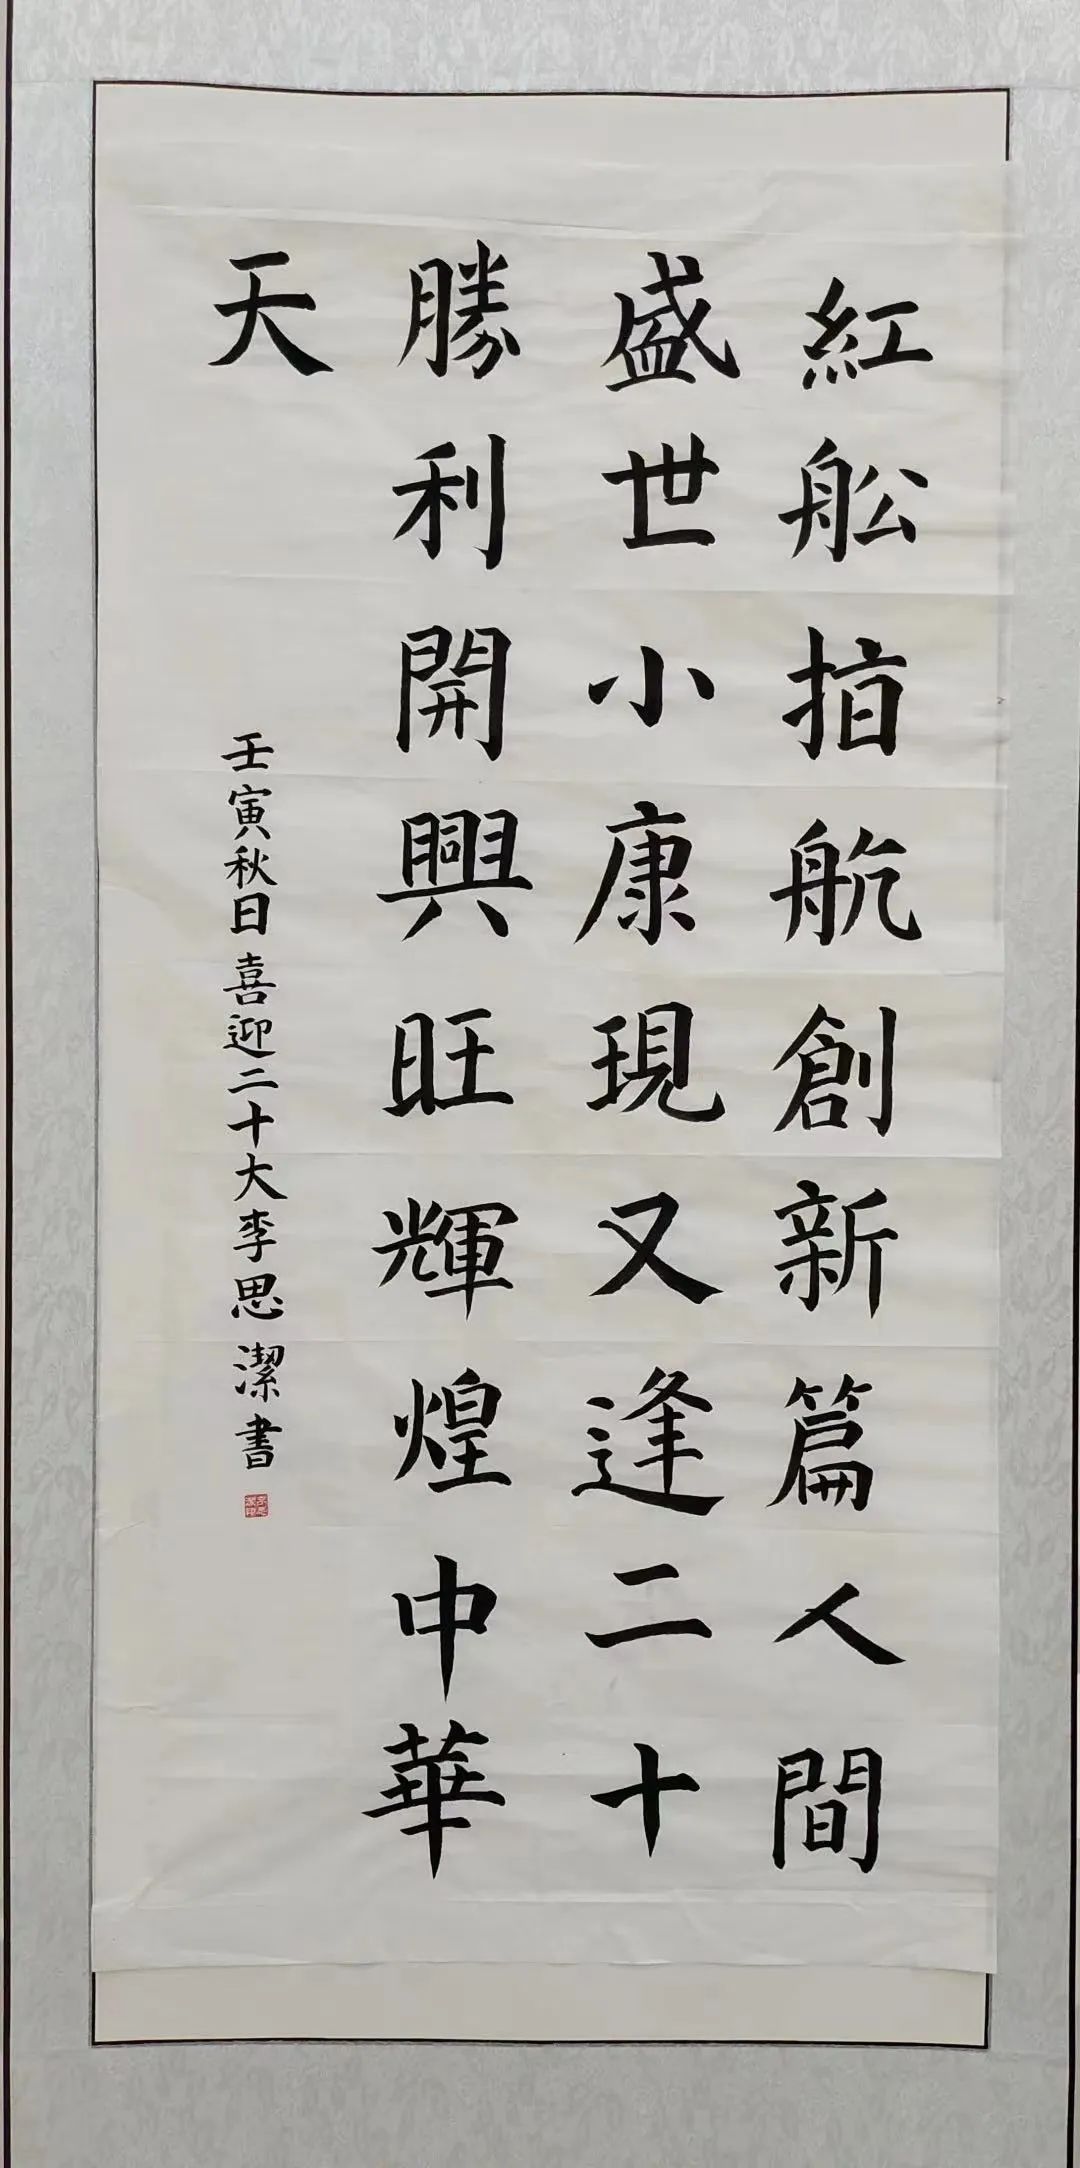 紅舩指航創新篇人間
盛世小康現又逢二十
勝利開興旺輝煌中華
天
壬寅秋日喜迎二十大李思潔書